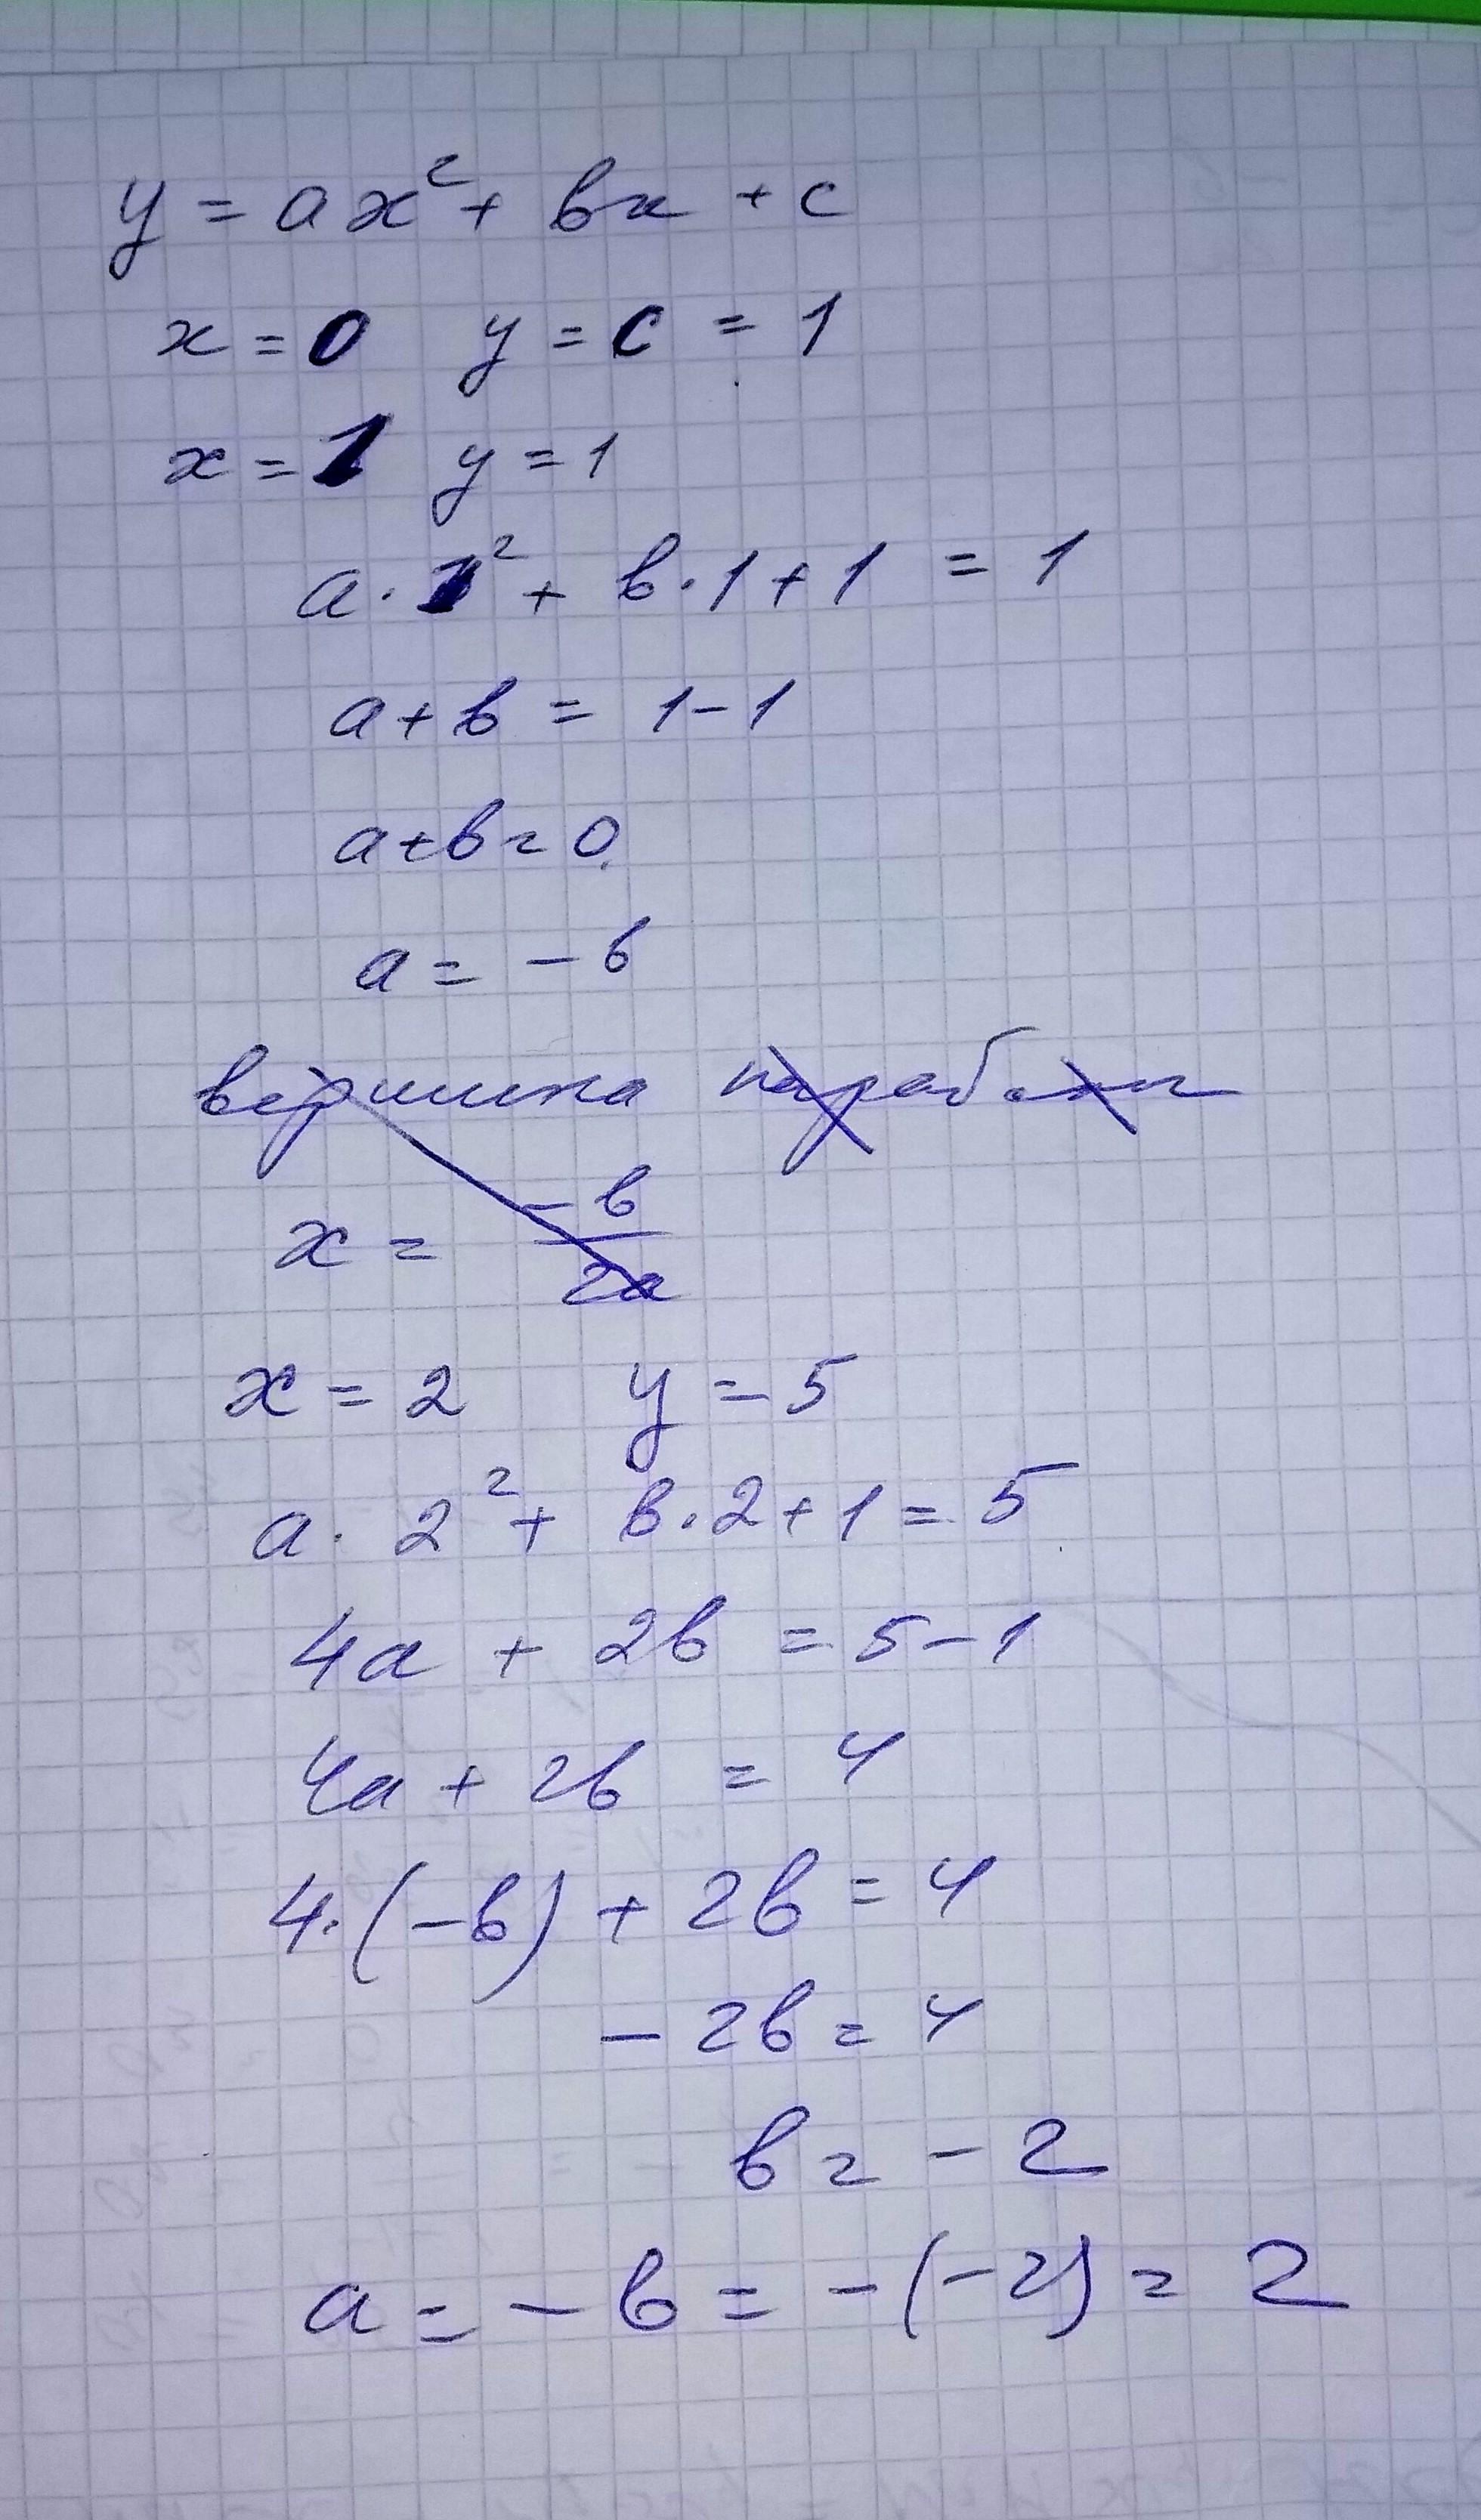 y = ax² + bx + c
x = 0 y = c = 1
x = 1 y = 1
a · 1² + b · 1 + 1 = 1
a + b = 1 - 1
a + b = 0
a = - b
вершина параболы
x = -b/2a
x = 2 y = 5
a · 2² + b · 2 + 1 = 5
4a + 2b = 5 - 1
4a + 2b = 4
4 · (-b) + 2b = 4
- 2b = 4
b = - 2
a = - b = - (-2) = 2